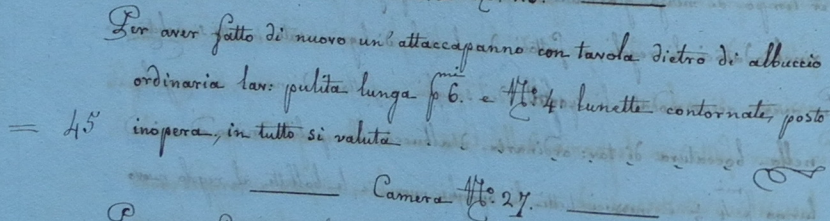 Per aver fatto di nuovo un'attaccapanno con tavola dietro di albuccio
ordinaria lav: pulita lunga pmi 6. e No: 4 lunette contornate, posto
= 45 inopera, in tutto si valuta
Camera No: 27.